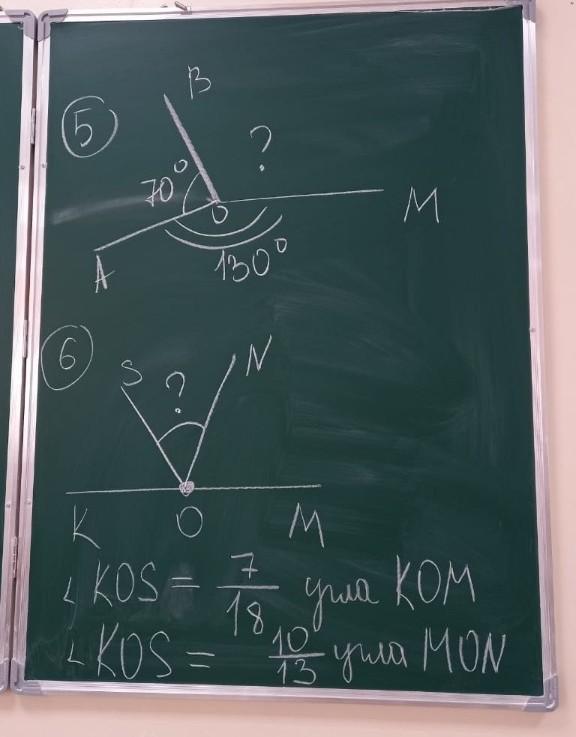 5
B
?
70°
O
M
A
130°
6
S
?
N
K
O
M
∠KOS = 7/18 угла KOM
∠KOS = 10/13 угла MON